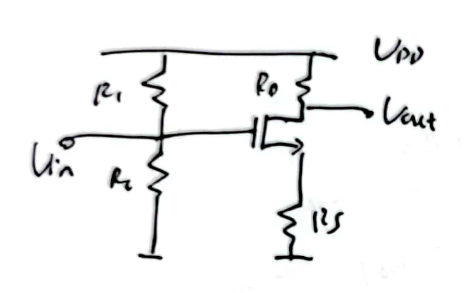 VDD
R1
RD
Vout
Vin
R2
RS